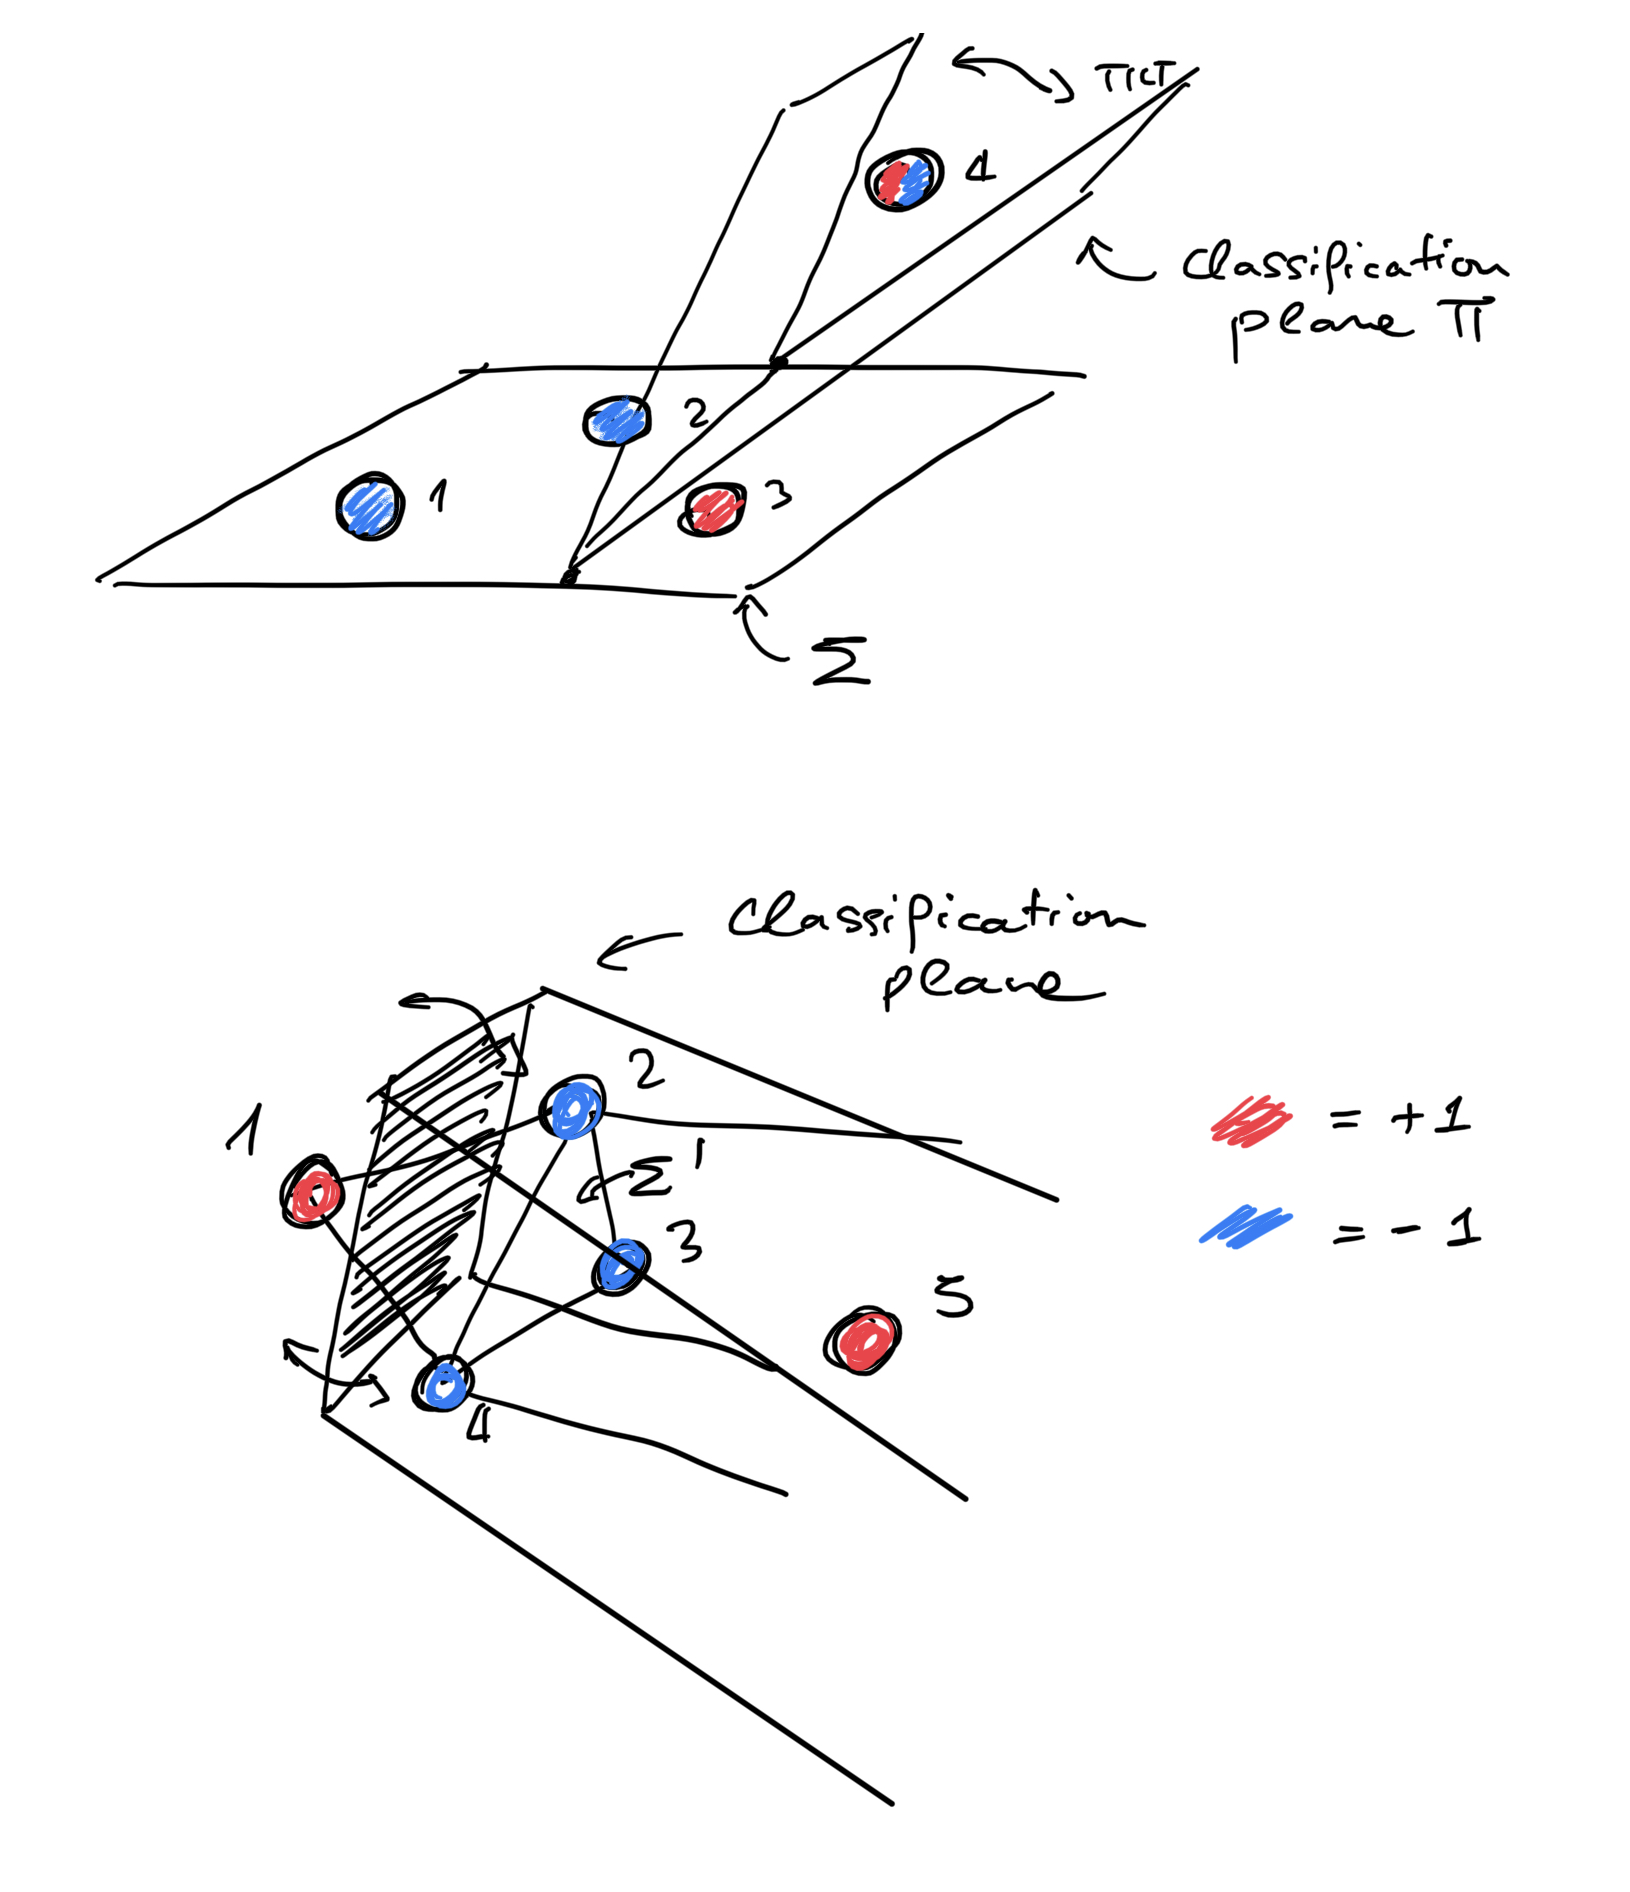 TILT
4
Classification
plane Π
2
1
3
Σ
Classification
plane
2
1
Σ'
3
5
4
= +1
= - 1